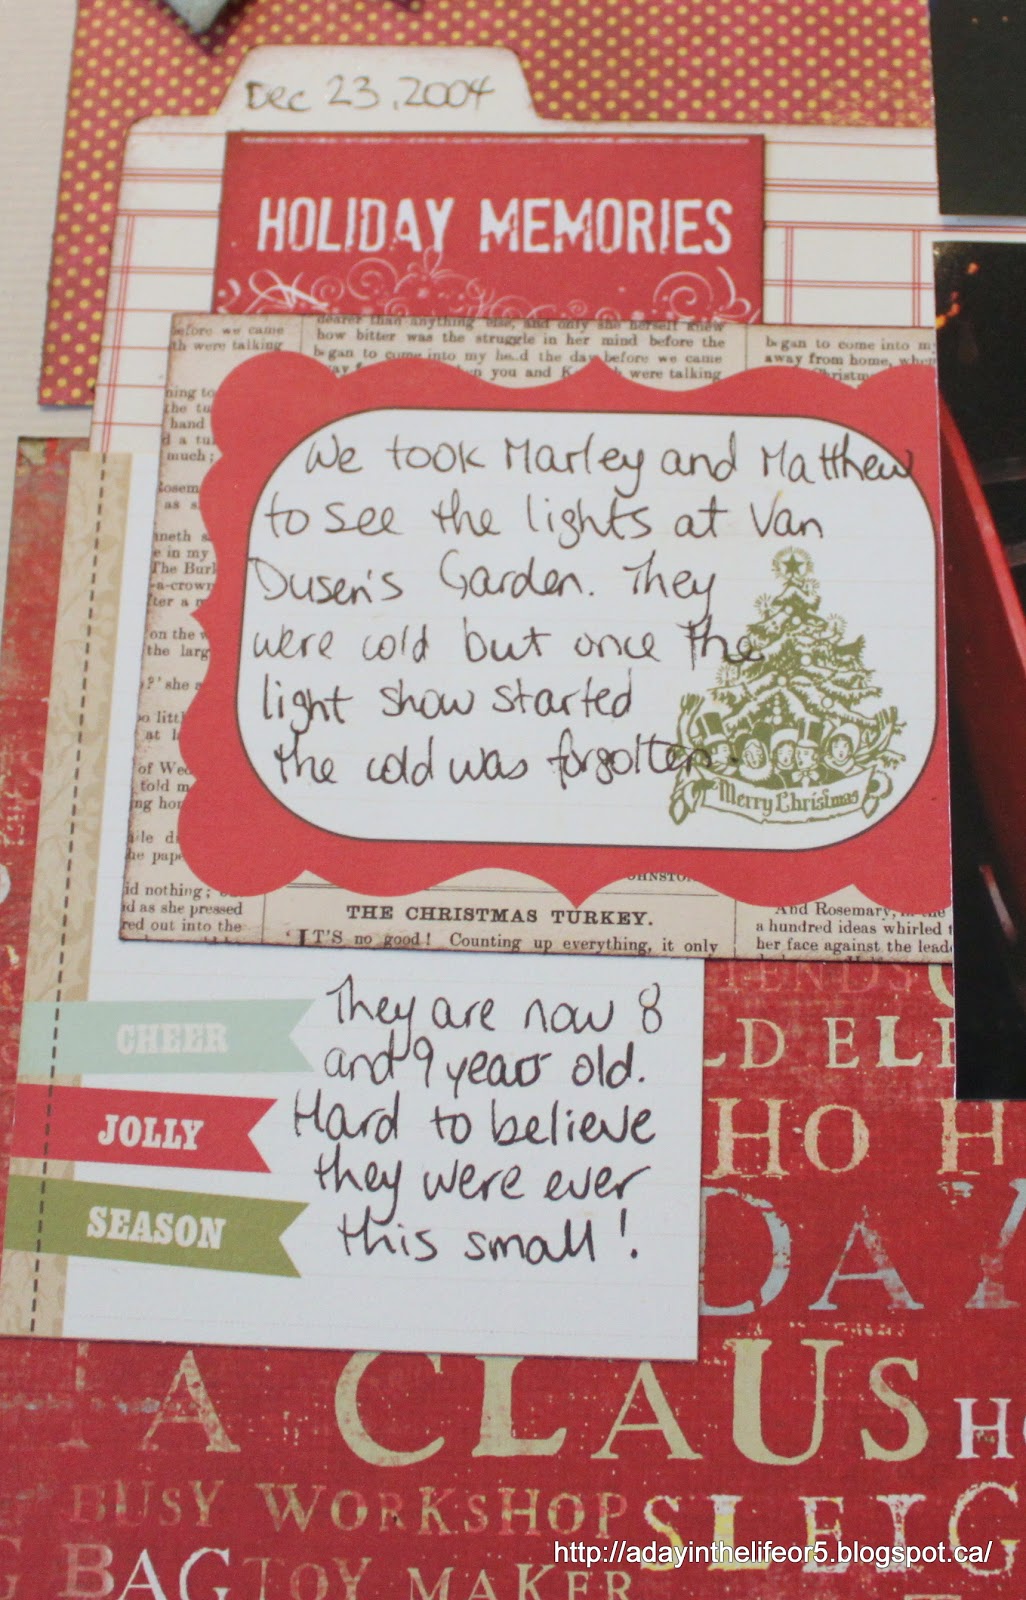 Dec 23, 2004
HOLIDAY MEMORIES
before we came
th were talking
dearer than anything else, and only she herself knew
how bitter was the struggle in her mind before the
began to come into my head the day before we came
you and
were talking
began to come into my
away from home, when
Christm
ning to
the tu
hand
d a tu
much;
Rosem
as s
nneth s
e in my
The Burl
-a-crown
fter a m
on the
the larg
?' she a
oo littl
at la
of Wed
told m
ng hor
le d
he pape
We took Marley and Matthew
to see the lights at Van
Dusen's Garden. They
were cold but once the
light show started
the cold was forgotten.
Merry Christmas
id nothing;
id as she pressed
red out into the
JOHNSTO
THE CHRISTMAS TURKEY.
'IT'S no good! Counting up everything, it only
And Rosemary, in the
a hundred ideas whirled t
her face against the lead
CHEER
JOLLY
SEASON
They are now 8
and 9 years old.
Hard to believe
they were ever
this small!
IENDS
LD ELE
HO H
DAY
TA CLAUS HO
BUSY WORKSHOP SLEIG
G BAG TOY MAKER
http://adayinthelifeor5.blogspot.ca/